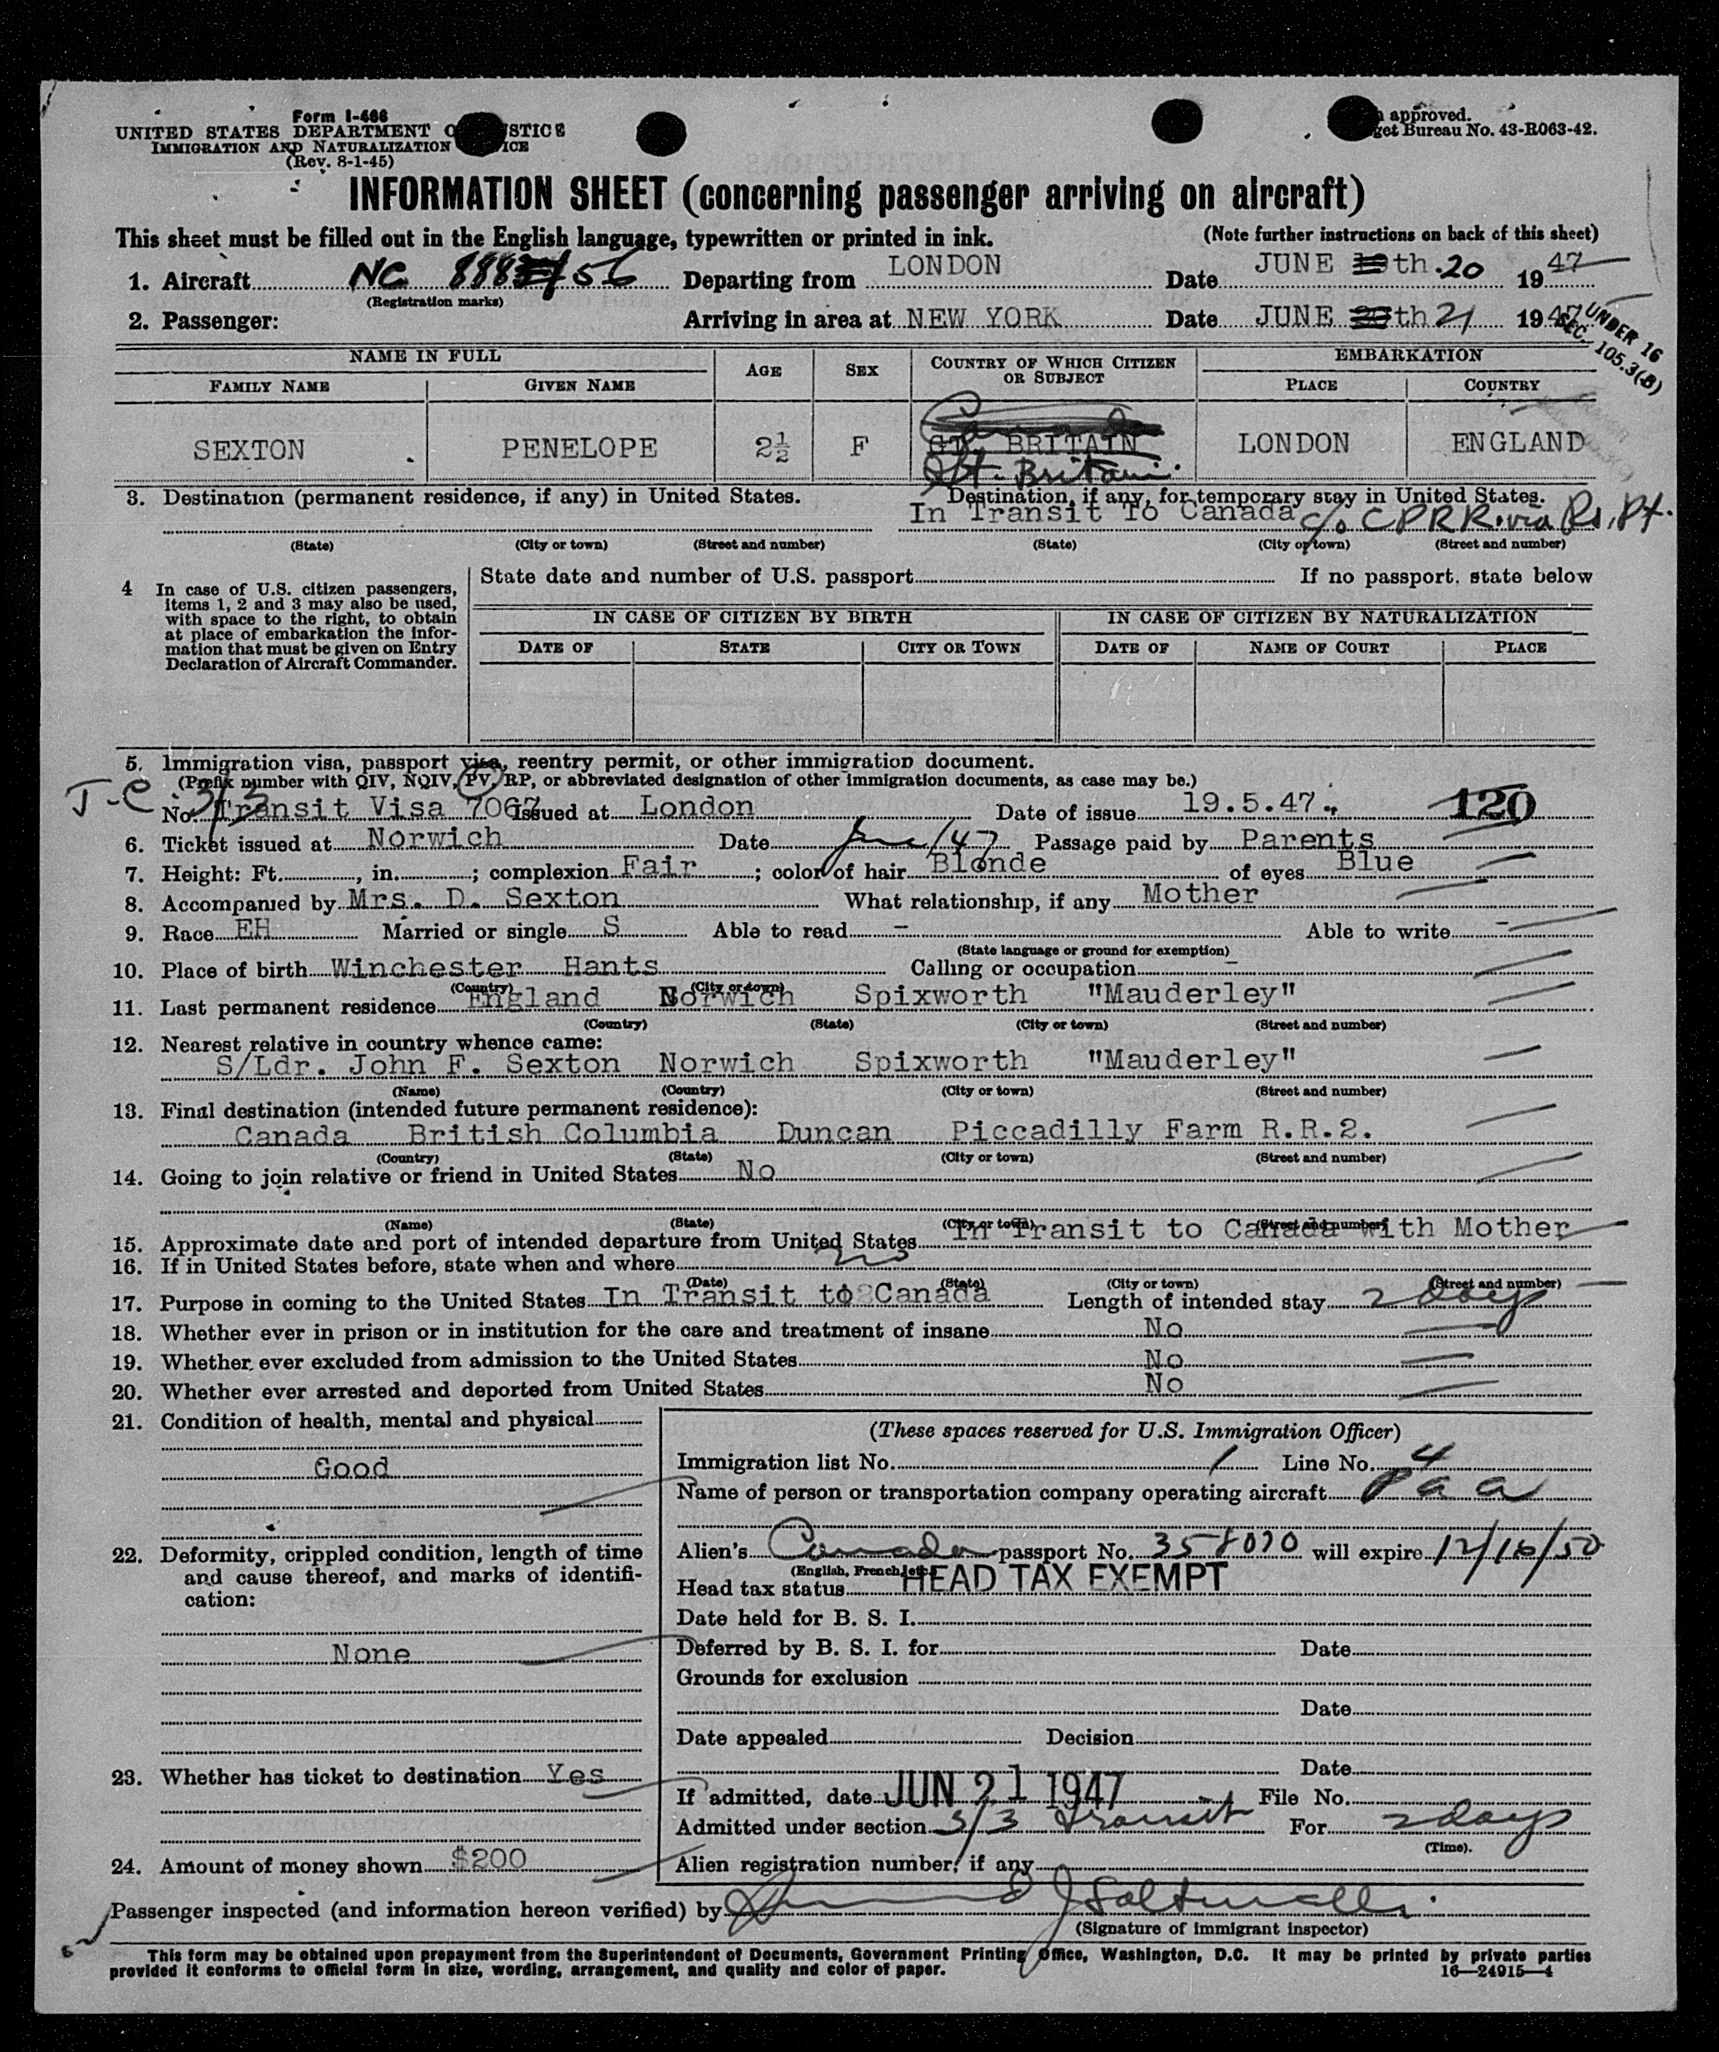 Form I-466
UNITED STATES DEPARTMENT O STICE
IMMIGRATION AND NATURALIZATION ICE
(Rev. 8-1-45)
approved.
get Bureau No. 43-R063-42.
INFORMATION SHEET (concerning passenger arriving on aircraft)
This sheet must be filled out in the English language, typewritten or printed in ink. (Note further instructions on back of this sheet)
1. Aircraft NC 888 56 Departing from LONDON Date JUNE th. 20 19 47
(Registration marks)
2. Passenger: Arriving in area at NEW YORK Date JUNE th 21 19 47.
UNDER 16
SEC. 105.3(B)
NAME IN FULL AGE SEX COUNTRY OF WHICH CITIZEN OR SUBJECT EMBARKATION
FAMILY NAME GIVEN NAME PLACE COUNTRY
Canada
SEXTON PENELOPE 2½ F GT. BRITAIN LONDON ENGLAND
Gt. Britain
3. Destination (permanent residence, if any) in United States. Destination, if any, for temporary stay in United States.
In Transit To Canada c/o C P R R. via Rs. Pt.
(State) (City or town) (Street and number) (State) (City or town) (Street and number)
4 In case of U.S. citizen passengers, items 1, 2 and 3 may also be used, with space to the right, to obtain at place of embarkation the information that must be given on Entry Declaration of Aircraft Commander.
State date and number of U.S. passport If no passport, state below
IN CASE OF CITIZEN BY BIRTH IN CASE OF CITIZEN BY NATURALIZATION
DATE OF STATE CITY OR TOWN DATE OF NAME OF COURT PLACE
5. Immigration visa, passport visa, reentry permit, or other immigration document.
(Prefix number with QIV, NQIV, PV, RP, or abbreviated designation of other immigration documents, as case may be.)
T-C. 3/3
No. Transit Visa 7067 Issued at London Date of issue 19.5.47. 120
6. Ticket issued at Norwich Date June/47 Passage paid by Parents
7. Height: Ft. , in. ; complexion Fair ; color of hair Blonde of eyes Blue
8. Accompanied by Mrs. D. Sexton What relationship, if any Mother
9. Race EH Married or single S Able to read - Able to write -
(State language or ground for exemption)
10. Place of birth Winchester Hants Calling or occupation -
(Country) (City or town)
11. Last permanent residence England Norwich Spixworth "Mauderley"
(Country) (State) (City or town) (Street and number)
12. Nearest relative in country whence came:
S/Ldr. John F. Sexton Norwich Spixworth "Mauderley"
(Name) (Country) (City or town) (Street and number)
13. Final destination (intended future permanent residence):
Canada British Columbia Duncan Piccadilly Farm R.R.2.
(Country) (State) (City or town) (Street and number)
14. Going to join relative or friend in United States No
(Name) (State) (City or town) (Street and number)
15. Approximate date and port of intended departure from United States In Transit to Canada with Mother
16. If in United States before, state when and where no
(Date) (State) (City or town) (Street and number)
17. Purpose in coming to the United States In Transit to Canada Length of intended stay 2 days
18. Whether ever in prison or in institution for the care and treatment of insane No
19. Whether ever excluded from admission to the United States No
20. Whether ever arrested and deported from United States No
21. Condition of health, mental and physical
Good
22. Deformity, crippled condition, length of time and cause thereof, and marks of identification:
None
23. Whether has ticket to destination Yes
24. Amount of money shown $200
(These spaces reserved for U.S. Immigration Officer)
Immigration list No. 1 Line No. 4
Name of person or transportation company operating aircraft P a a
Alien's Canada passport No. 358070 will expire 12/16/50
(English, French, etc.)
Head tax status HEAD TAX EXEMPT
Date held for B. S. I.
Deferred by B. S. I. for Date
Grounds for exclusion
Date
Date appealed Decision
Date
If admitted, date JUN 21 1947 File No.
Admitted under section 3/3 transit For 2 days
(Time).
Alien registration number, if any
Passenger inspected (and information hereon verified) by
(Signature of immigrant inspector)
This form may be obtained upon prepayment from the Superintendent of Documents, Government Printing Office, Washington, D.C. It may be printed by private parties
provided it conforms to official form in size, wording, arrangement, and quality and color of paper. 16—24915—4